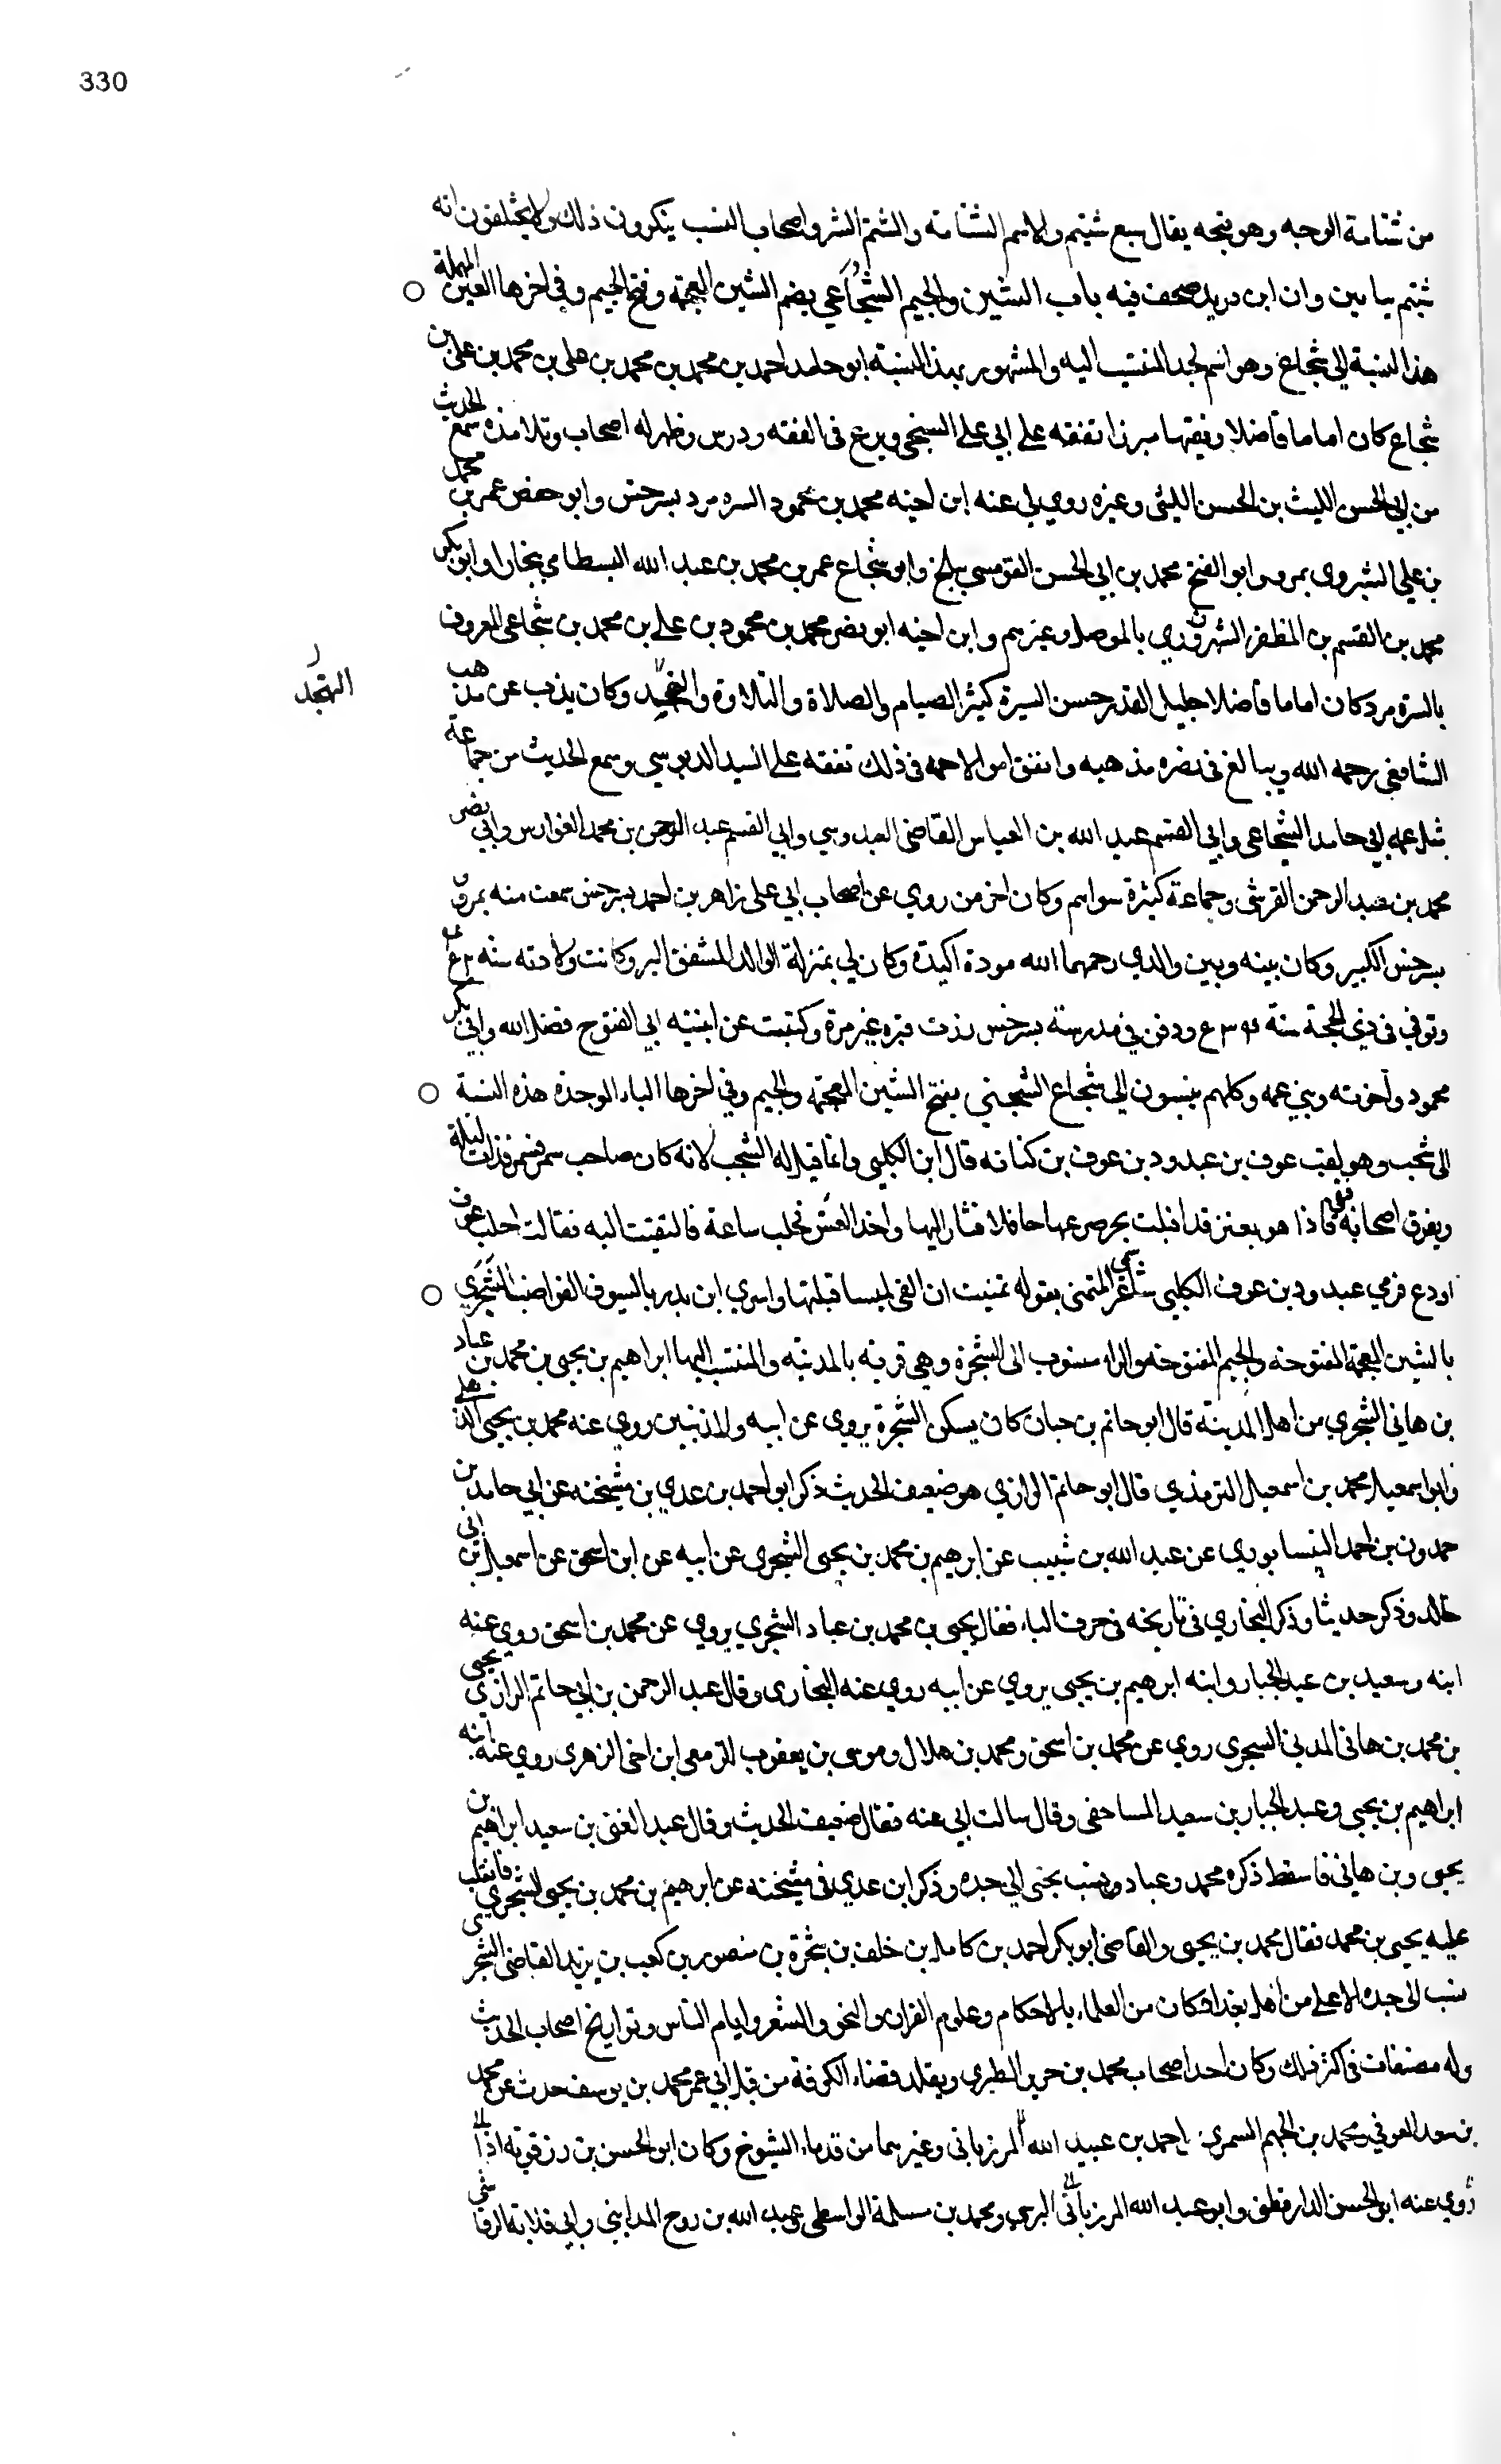 330
من شتامة الوجه وهو قبحه يقال سبع شتيم والاسم الشتامة والشتم الشر واصحاب النسب ينكرون ذلك ولا يختلفون انه
شتيم بيايين وان ابن دريد صحف فيه باب الشين والجيم الشجاعي بضم الشين المعجمة وفتح الجيم وفي اخرها العين المهملة
هذه النسبة الى شجاع وهو اسم لجد المنتسب اليه والمشهور بهذه النسبة ابو حامد احمد بن محمد بن محمد بن علي بن محمد بن علي بن
شجاع كان اماما فاضلا وفقيها مبرزا تفقه على ابي علي السنجي وبرع في الفقه ودرس وظهر له اصحاب وتلامذه سمع الحديث
من ابي الحسن الليث بن الحسن الليثي وغيره روى لي عنه ابن اخيه محمد بن محمود السره مرد بسرخس وابو حفص عمر بن محمد
بن علي الشيروي بمرو وابو الفتح محمد بن ابي الحسن القومسي ببلخ وابو شجاع عمر بن محمد بن عبد الله البسطامي ببخارا وابو بكر
محمد بن القسم بن المظفر الشهرزوري بالموصل وغيرهم وابن اخيه ابو نصر محمد بن محمود بن علي بن محمد بن شجاعي المعروف
بالسرة مرد كان اماما فاضلا جليل القدر حسن السيرة كثير الصيام والصلاة والتلاوة والتهجد وكان يذب عن مذهب
التهجد
الشافعي رحمه الله ويبالغ في نصره مذهبه وانفق اموالا جمة في ذلك تفقه على السيد الدبوسي وسمع الحديث من جماعة
مثل عمه ابي حامد الشجاعي وابي القسم عبد الله بن العباس القاضي العبدوسي وابي القسم عبد الرحمن بن محمد الفوارس وابي نصر
محمد بن عبد الرحمن القرشي وجماعة كثيرة سواهم وكان اخر من روى عن اصحاب ابي علي زاهر بن احمد بسرخس سمعت منه بمرو و
بسرخس الكبير وكان بينه وبين والدي رحمهما الله مودة اكيدة وكان لي بمنزلة الوالد المشفق البر وكانت ولادته سنه
وتوفي في ذي الحجة سنة ودفن في مدرسته بسرخس زرت قبره غير مرة وكتبت عن ابنيه ابي الفتوح فضل الله وابي بكر
محمود واخوته وبني عمه وكلهم ينسبون الى شجاع الشجبي بفتح الشين المعجمة والجيم وفي اخرها الباء الموحدة هذه النسبة
الى شجب وهو لقب عوف بن عبدود بن عوف بن كنانه قال ابن الكلبي وانما قيل له الشجب لانه كان صاحب سمر فسمر ذات ليلة
وتفرق اصحابه فاذا هو بعنز قد اقبلت تجر ضرعها حافلا فثار اليها واخذ العس فحلب ساعة فالتفتت اليه فقالت احلب عوف
او دع فرمي عبد ود بن عوف الكلبي شاعر سمي المتمني بقوله تمنيت ان القى لميسا قبلتها واسري ابن بدر بالسيوف القواضب الشجري
بالشين المعجمة المفتوحة والجيم المفتوحة والراء منسوب الى الشجرة وهي قرية بالمدينة والمنتسب اليها ابراهيم بن يحيى بن محمد بن عباد
بن هاني الشجري من اهل المدينة قال ابو حاتم بن حبان كان يسكن الشجرة يروي عن ابيه والاذنيين روى عنه محمد بن يحيى الذهلي
وابو اسمعيل محمد بن اسمعيل الترمذي قال ابو حاتم الرازي هو ضعيف الحديث ذكر ابو احمد بن عدي بن مشيخته عن ابي حامد بن
حمدون بن احمد النيسابوري عن عبد الله بن شبيب عن ابرهيم بن محمد بن يحيى الشجري عن ابيه عن ابن اسحق عن اسمعيل بن ابي
خالد وذكر حديثا وذكر البخاري في تاريخه في حرف الياء فقال يحيى بن محمد بن عباد الشجري يروي عن محمد بن اسحق روى عنه
ابنه وسعيد بن عبد الجبار وابنه ابرهيم بن يحيى يروي عن ابيه روى عنه البخاري وقال عبد الرحمن بن ابي حاتم الرازي يحيى
بن محمد بن هاني المدني السجري روى عن محمد بن اسحق ومحمد بن هلال وموسى بن يعقوب الزمعي ابن اخي الزهري روى عنه ابنه
ابراهيم بن يحيى وعبد الجبار بن سعيد المساحقي وقال سالت ابي عنه فقال ضعيف الحديث وقال عبد الغني بن سعيد ابراهيم بن
يحيى وبن هاني فاسقط ذكره محمد وعباد ونسب يحيى الى جده وذكر ابن عدي في مشيخته عن ابرهيم بن محمد بن يحيى الشجري فانقلب
عليه يحيى بن محمد فقال محمد بن يحيى والقاضي ابو بكر احمد بن كامل بن خلف بن شجرة بن منصور بن كعب بن يزيد القاضي الشجري
نسب الى جده الاعلى من اهل بغداد كان من العلماء بالاحكام وعلوم القران والنحو والشعر وايام الناس وتواريخ اصحاب الحديث
وله مصنفات في اكثر ذلك وكان احد اصحاب محمد بن جرير الطبري وتقلد قضاء الكوفة من قبل ابي عمر محمد بن يوسف حدث عن محمد
بن سعد العوفي ومحمد بن الجهم السمري احمد بن عبيد الله المرزباني وغيرهما من قدماء الشيوخ وكان ابو الحسن بن رزقويه اذا
روى عنه ابو الحسن الدارقطني وابو عبد الله المرزباني البرسي ومحمد بن مسلمة الواسطي وعبد الله بن روح المدايني وابي قلابة الرقاشي